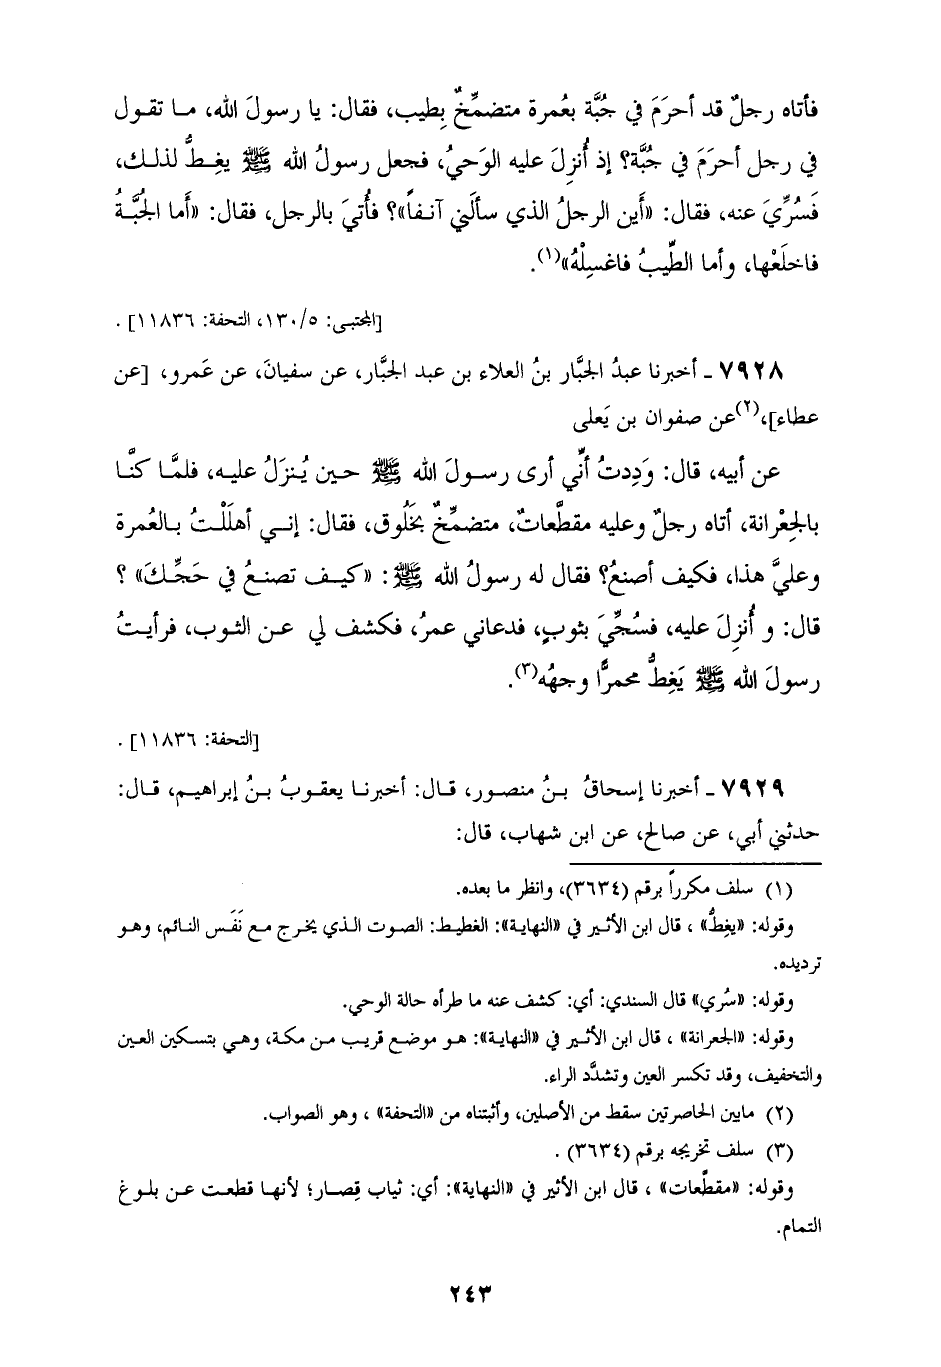 فأتاه رجلٌ قد أحرَمَ في جُبَّة بعُمرة متضمِّخٌ بِطيب، فقال: يا رسولَ الله، مـا تقـول
في رجل أحرَمَ في جُبَّة؟ إذ أُنزِلَ عليه الوَحيُ، فجعل رسولُ الله ﷺ يغِطُّ لذلـك،
فَسُرِّيَ عنه، فقال: «أَين الرجلُ الذي سألَني آنـفاً»؟ فأُتيَ بالرجل، فقال: «أَما الجُبَّـةُ
فاخلَعْها، وأما الطِّيبُ فاغسِلْهُ»(١).
[المجتبى: ١٣٠/٥، التحفة: ١١٨٣٦] .
٧٩٢٨ ـ أخبرنا عبدُ الجبَّار بنُ العلاء بن عبد الجبَّار، عن سفيانَ، عن عَمرو، [عن
عطاء]،(٢)عن صفوان بن يَعلى
عن أبيه، قال: وَدِدتُ أنِّي أرى رسـولَ الله ﷺ حـين يُـنزَلُ عليـه، فلمَّـا كنَّـا
بالجِعْرانة، أتاه رجلٌ وعليه مقطَّعاتٌ، متضمِّخٌ بخَلُوق، فقال: إنـي أهلَلْـتُ بـالعُمرة
وعليَّ هذا، فكيف أصنعُ؟ فقال له رسولُ الله ﷺ: «كيـف تصنـعُ في حَجِّـكَ» ؟
قال: و أُنزِلَ عليه، فسُجِّيَ بثوبٍ، فدعاني عمرُ، فكشف لي عـن الثـوب، فرأيـتُ
رسولَ الله ﷺ يَغِطُّ محمرًّا وجهُه(٣).
[التحفة: ١١٨٣٦] .
٧٩٢٩ ـ أخبرنا إسحاقُ بـنُ منصور، قـال: أخبرنـا يعقـوبُ بـنُ إبراهيـم، قـال:
حدثني أبي، عن صالح، عن ابن شهاب، قال:
(١) سلف مكرراً برقم (٣٦٣٤)، وانظر ما بعده.
وقوله: «يغِطُّ» ، قال ابن الأثـير في «النهايـة»: الغطيط: الصوت الـذي يخـرج مـع نَفَـس النـائم، وهـو
ترديده.
وقوله: «سُري» قال السندي: أي: كشف عنه ما طرأه حالة الوحي.
وقوله: «الجعرانة» ، قال ابن الأثـير في «النهايـة»: هـو موضـع قريـب مـن مكـة، وهـي بتسـكين العـين
والتخفيف، وقد تكسر العين وتشدَّد الراء.
(٢) مابين الحاصرتين سقط من الأصلين، وأثبتناه من «التحفة» ، وهو الصواب.
(٣) سلف تخريجه برقم (٣٦٣٤) .
وقوله: «مقطَّعات» ، قال ابن الأثير في «النهاية»: أي: ثياب قِصـار؛ لأنهـا قطعـت عـن بلـوغ
التمام.
٢٤٣